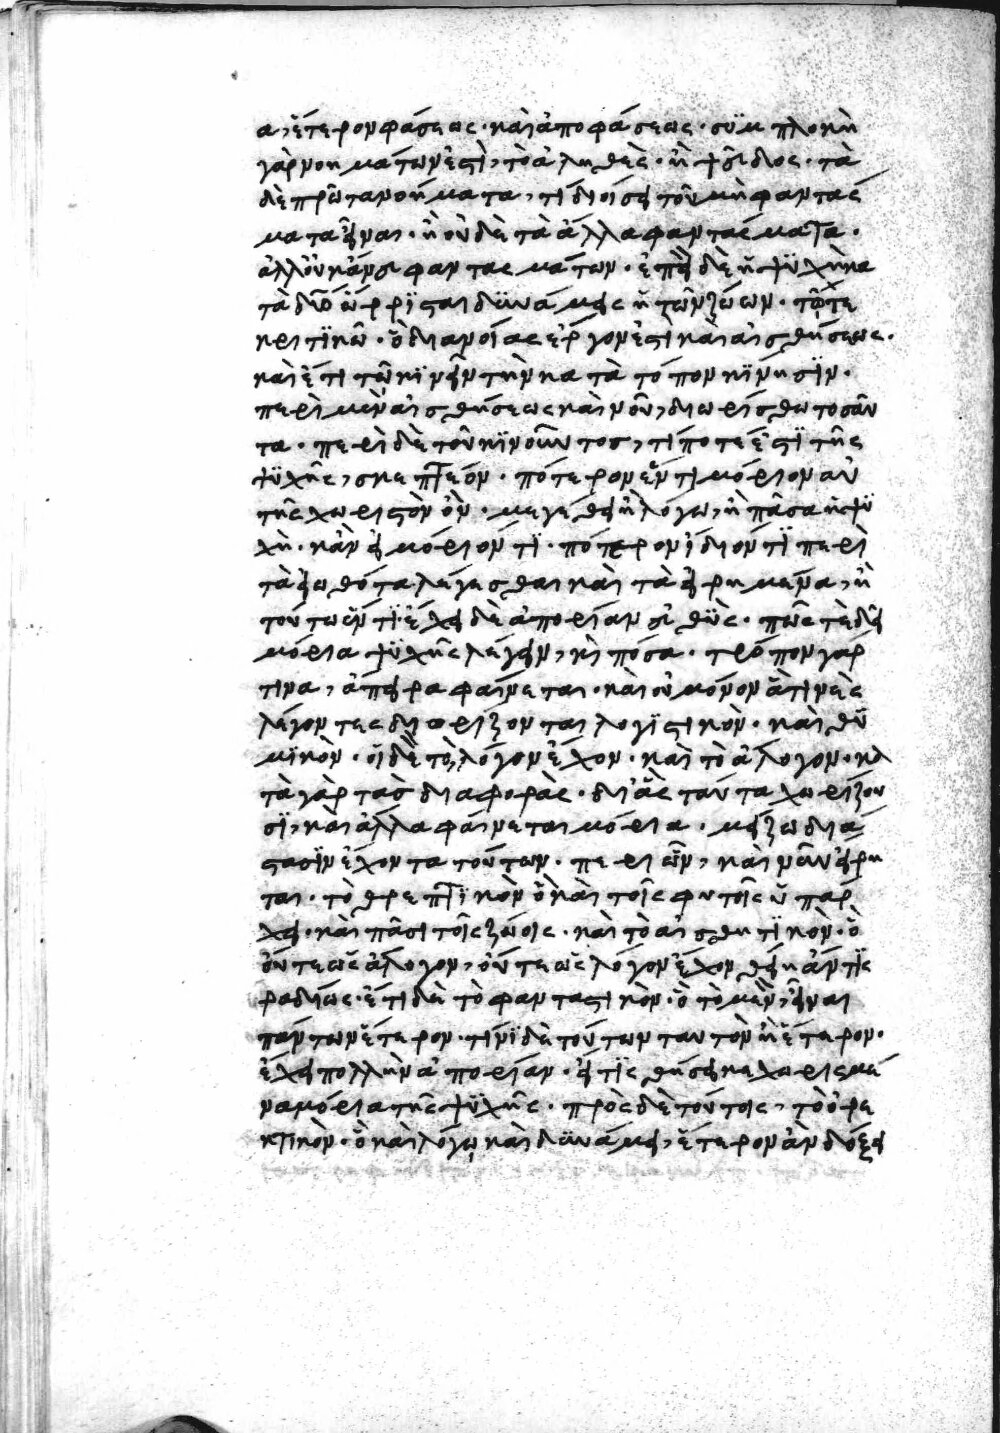 α, ἕτερον φάσεως · καὶ ἀποφάσεως · συμπλοκὴ
γὰρ νοημάτων ἐστὶ, τὸ ἀληθὲς · ἢ ψεῦδος · τὰ
δὲ πρῶτα νοήματα, τί διοίσει τοῦ μὴ φαντάσ
ματα εἶναι · ἢ οὐδὲ τὰ ἄλλα φαντάσματα ·
ἀλλ' οὐκ ἄνευ φαντασμάτων · ἐπεὶ δὲ ἡ ψυχὴ κα
τὰ δύο ὥρρισται δυνάμεις ἡ τῶν ζώων · τῷ τε
κριτικῷ · ὃ διανοίας ἔργον ἐστὶ καὶ αἰσθήσεως ·
καὶ ἔτι τῷ κινεῖν τὴν κατὰ τόπον κίνησιν ·
περὶ μὲν αἰσθήσεως καὶ νοῦ, διωρίσθω τοσαῦ
τα · περὶ δὲ τοῦ κινοῦντος, τί ποτέ ἐστι τῆς
ψυχῆς, σκεπτέον · πότερον ἕν τι μόριον αὐ
τῆς χωριστὸν ὂν · μεγέθει ἢ λόγω, ἢ πᾶσα ἡ ψυ
χὴ · κἂν εἰ μόριόν τι · πότερον ἴδιόν τι περὶ
τὰ εἰωθότα λέγεσθαι καὶ τὰ εἰρημένα, ἢ
τούτων ἕν τι · ἔχει δὲ ἀπορίαν εὐθὺς · πῶς τὲ δεῖ
μόρια ψυχῆς λέγειν, κὶ πόσα · τρόπον γάρ
τινα, ἄπειρα φαίνεται · καὶ οὐ μόνον ἅ τινὲς
λέγοντες διορίζονται λογιστικὸν · καὶ θυ
μικὸν · οἱ δὲ τὸ λόγον ἔχον · καὶ τὸ ἄλογον · κα
τὰ γὰρ τὰς διαφορὰς · δι' ἃς ταῦτα χωρίζου
σι, καὶ ἄλλα φαίνεται μόρια · μείζω διά
στασιν ἔχοντα τούτων · περὶ ὧν, καὶ νῦν εἴρη
ται · τὸ θρεπτικὸν ὃ καὶ τοῖς φυτοῖς ὑπάρ
χει · καὶ πᾶσι τοῖς ζώοις · καὶ τὸ αἰσθητικὸν · ὃ
οὔτε ὡς ἄλογον, οὔτε ὡς λόγον ἔχον θείη ἄν τις
ραδίως · ἔτι δὲ τὸ φανταστικὸν · ὃ τὸ μὲν, εἶναι
πάντων ἕτερον · τίνι δὲ τούτων ταυτὸν ἢ ἕτερον ·
ἔχει πολλὴν ἀπορίαν · εἴ τις θήσει κεχωρισμέ
να μόρια τῆς ψυχῆς · πρὸς δὲ τούτοις, τὸ ὀρε
κτικὸν · ὃ καὶ λόγῳ καὶ δυνάμει, ἕτερον ἂν δόξει